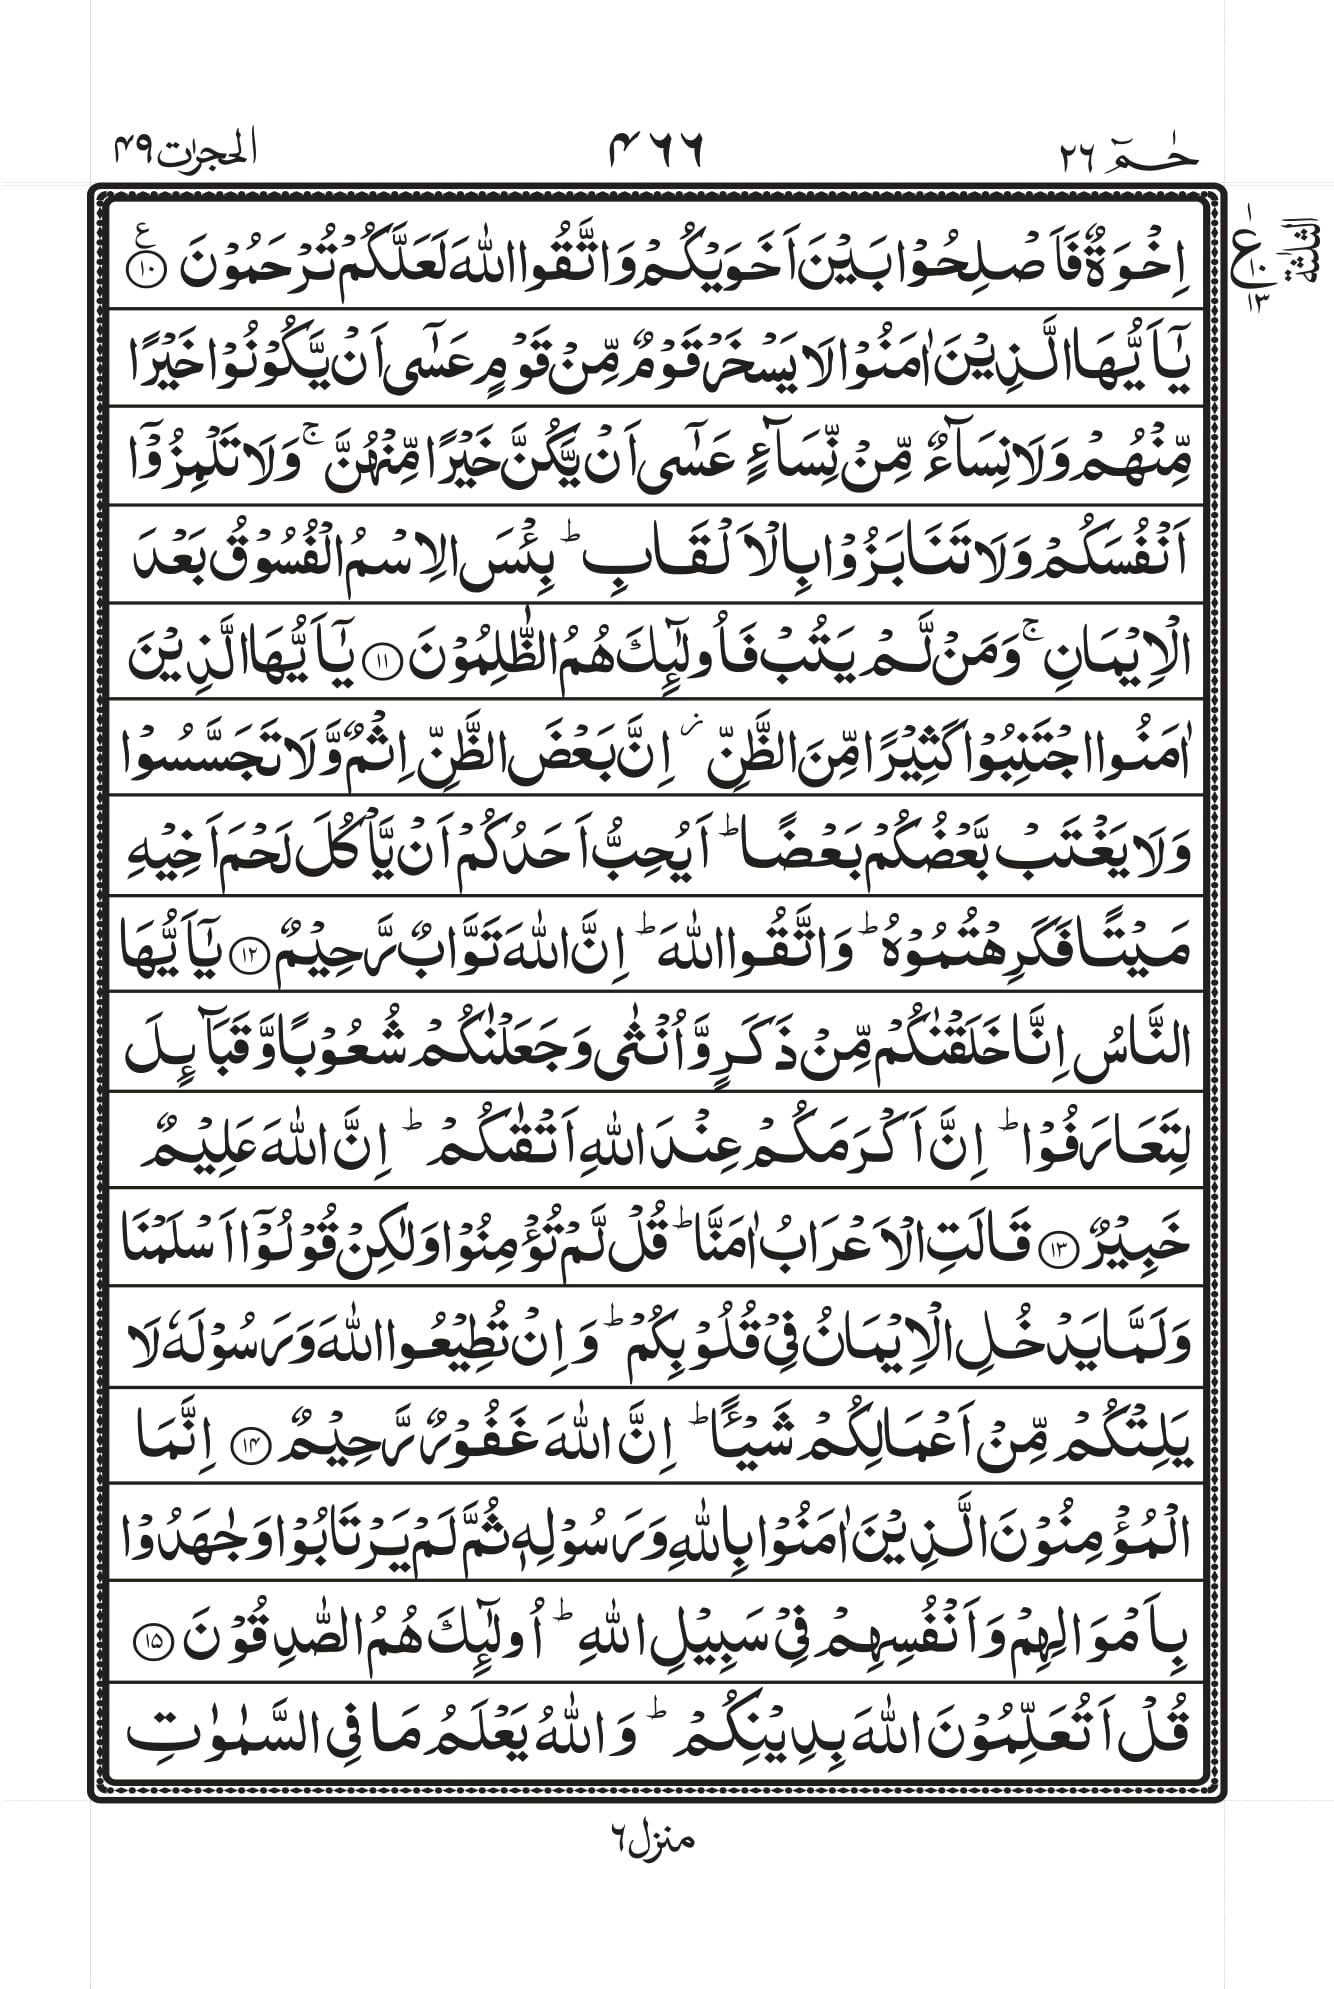 حٰمٓ ٢٦
۴٦٦
الحجرات ۴۹
اِخْوَةٌ فَاَصْلِحُوْا بَيْنَ اَخَوَيْكُمْ وَاتَّقُوا اللّٰهَ لَعَلَّكُمْ تُرْحَمُوْنَ ع ۱۰
يٰٓاَيُّهَا الَّذِيْنَ اٰمَنُوْا لَا يَسْخَرْ قَوْمٌ مِّنْ قَوْمٍ عَسٰٓى اَنْ يَّكُوْنُوْا خَيْرًا
مِّنْهُمْ وَلَا نِسَآءٌ مِّنْ نِّسَآءٍ عَسٰٓى اَنْ يَّكُنَّ خَيْرًا مِّنْهُنَّ ۚ وَلَا تَلْمِزُوْٓا
اَنْفُسَكُمْ وَلَا تَنَابَزُوْا بِالْاَلْقَابِ ؕ بِئْسَ الِاسْمُ الْفُسُوْقُ بَعْدَ
الْاِيْمَانِ ۚ وَمَنْ لَّمْ يَتُبْ فَاُولٰٓئِكَ هُمُ الظّٰلِمُوْنَ ۱۱ يٰٓاَيُّهَا الَّذِيْنَ
اٰمَنُوا اجْتَنِبُوْا كَثِيْرًا مِّنَ الظَّنِّ ز اِنَّ بَعْضَ الظَّنِّ اِثْمٌ وَّلَا تَجَسَّسُوْا
وَلَا يَغْتَبْ بَّعْضُكُمْ بَعْضًا ؕ اَيُحِبُّ اَحَدُكُمْ اَنْ يَّاْكُلَ لَحْمَ اَخِيْهِ
مَيْتًا فَكَرِهْتُمُوْهُ ؕ وَاتَّقُوا اللّٰهَ ؕ اِنَّ اللّٰهَ تَوَّابٌ رَّحِيْمٌ ۱۲ يٰٓاَيُّهَا
النَّاسُ اِنَّا خَلَقْنٰكُمْ مِّنْ ذَكَرٍ وَّاُنْثٰى وَجَعَلْنٰكُمْ شُعُوْبًا وَّقَبَآئِلَ
لِتَعَارَفُوْا ؕ اِنَّ اَكْرَمَكُمْ عِنْدَ اللّٰهِ اَتْقٰىكُمْ ؕ اِنَّ اللّٰهَ عَلِيْمٌ
خَبِيْرٌ ۱۳ قَالَتِ الْاَعْرَابُ اٰمَنَّا ؕ قُلْ لَّمْ تُؤْمِنُوْا وَلٰكِنْ قُوْلُوْٓا اَسْلَمْنَا
وَلَمَّا يَدْخُلِ الْاِيْمَانُ فِيْ قُلُوْبِكُمْ ؕ وَاِنْ تُطِيْعُوا اللّٰهَ وَرَسُوْلَهٗ لَا
يَلِتْكُمْ مِّنْ اَعْمَالِكُمْ شَيْـًٔا ؕ اِنَّ اللّٰهَ غَفُوْرٌ رَّحِيْمٌ ۱۴ اِنَّمَا
الْمُؤْمِنُوْنَ الَّذِيْنَ اٰمَنُوْا بِاللّٰهِ وَرَسُوْلِهٖ ثُمَّ لَمْ يَرْتَابُوْا وَجٰهَدُوْا
بِاَمْوَالِهِمْ وَاَنْفُسِهِمْ فِيْ سَبِيْلِ اللّٰهِ ؕ اُولٰٓئِكَ هُمُ الصّٰدِقُوْنَ ۱۵
قُلْ اَتُعَلِّمُوْنَ اللّٰهَ بِدِيْنِكُمْ ؕ وَاللّٰهُ يَعْلَمُ مَا فِي السَّمٰوٰتِ
۱
ع
۱۰
۱۳
الثلثة
منزل ٦